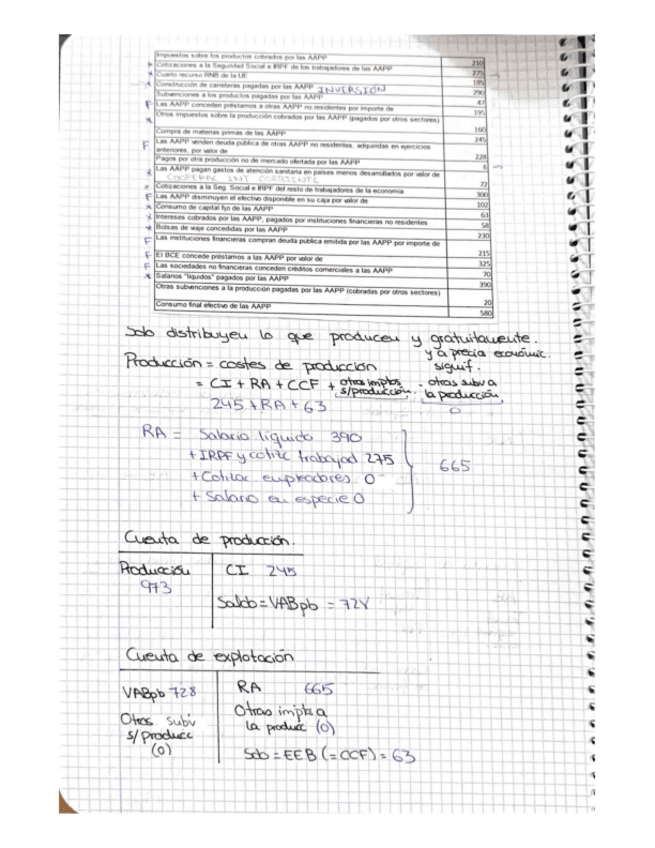 Impuestos sobre los productos cobrados por las AAPP 210
* Cotizaciones a la Seguridad Social e IRPF de los trabajadores de las AAPP 275
* Cuarto recurso RNB de la UE 185
* Construcción de carreteras pagadas por las AAPP INVERSIÓN 290
Subvenciones a los productos pagadas por las AAPP 47
F Las AAPP conceden préstamos a otras AAPP no residentes por importe de 195
* Otros impuestos sobre la producción cobrados por las AAPP (pagados por otros sectores) 160
Compra de materias primas de las AAPP 245
F Las AAPP venden deuda pública de otras AAPP no residentes, adquiridas en ejercicios
anteriores, por valor de 228
Pagos por otra producción no de mercado ofertada por las AAPP 6
* Las AAPP pagan gastos de atención sanitaria en países menos desarrollados por valor de 72
COOPERAC INT CORRIENTE
* Cotizaciones a la Seg. Social e IRPF del resto de trabajadores de la economía 300
F Las AAPP disminuyen el efectivo disponible en su caja por valor de 102
* Consumo de capital fijo de las AAPP 63
* Intereses cobrados por las AAPP, pagados por instituciones financieras no residentes 58
* Bolsas de viaje concedidas por las AAPP 230
F Las instituciones financieras compran deuda pública emitida por las AAPP por importe de 215
F El BCE concede préstamos a las AAPP por valor de 325
F Las sociedades no financieras conceden créditos comerciales a las AAPP 70
* Salarios "líquidos" pagados por las AAPP 390
Otras subvenciones a la producción pagadas por las AAPP (cobradas por otros sectores) 20
Consumo final efectivo de las AAPP 580
Solo distribuyen lo que producen y gratuitamente.
y a precio económic.
signif.
Producción = costes de producción
= CI + RA + CCF + otros imptos s/producción - otras subv a la producción
245 + RA + 63 0
RA = Salario líquido 390
+ IRPF y cotiz trabajad 275
+ Cotizac empleadores 0
+ Salario en especie 0
665
Cuenta de producción.
Producción 973
CI 245
Saldo = VABpb = 728
Cuenta de explotación
VABpb 728
RA 665
Otras subv s/producc (0)
Otros imptos a la producc (0)
Sdo = EEB (= CCF) = 63